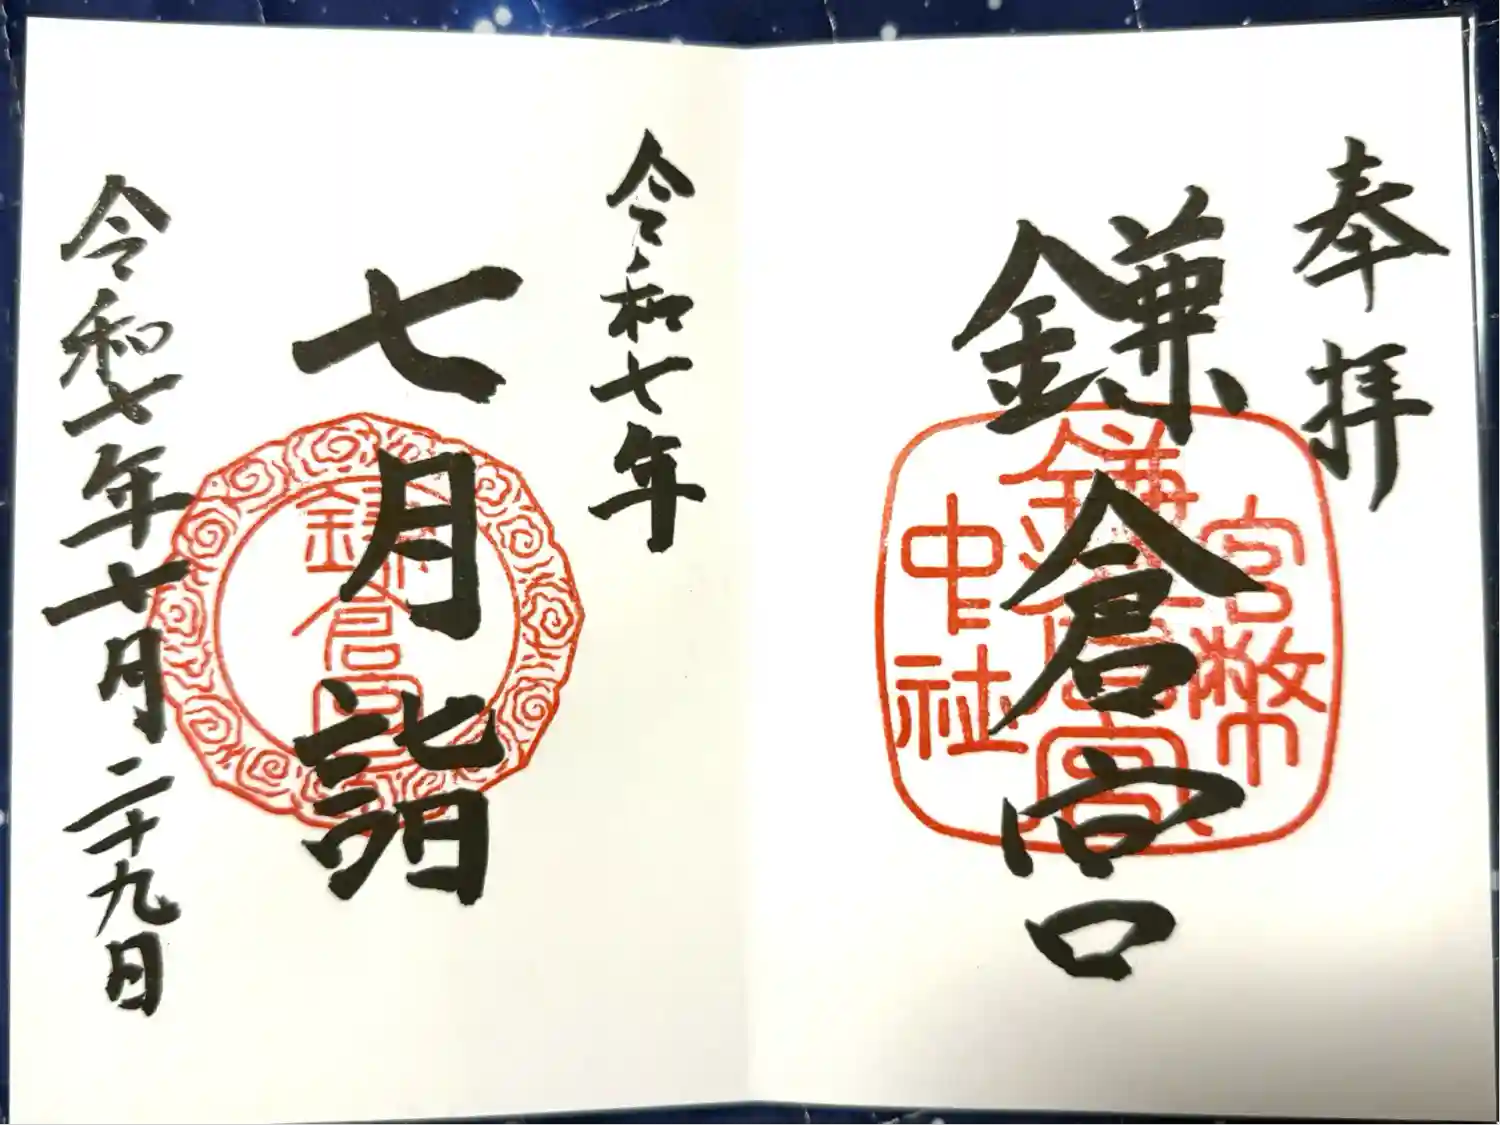 奉拝
鎌倉宮
官幣中社
鎌倉宮
令和七年
七月詣
鎌倉宮
令和七年七月二十九日